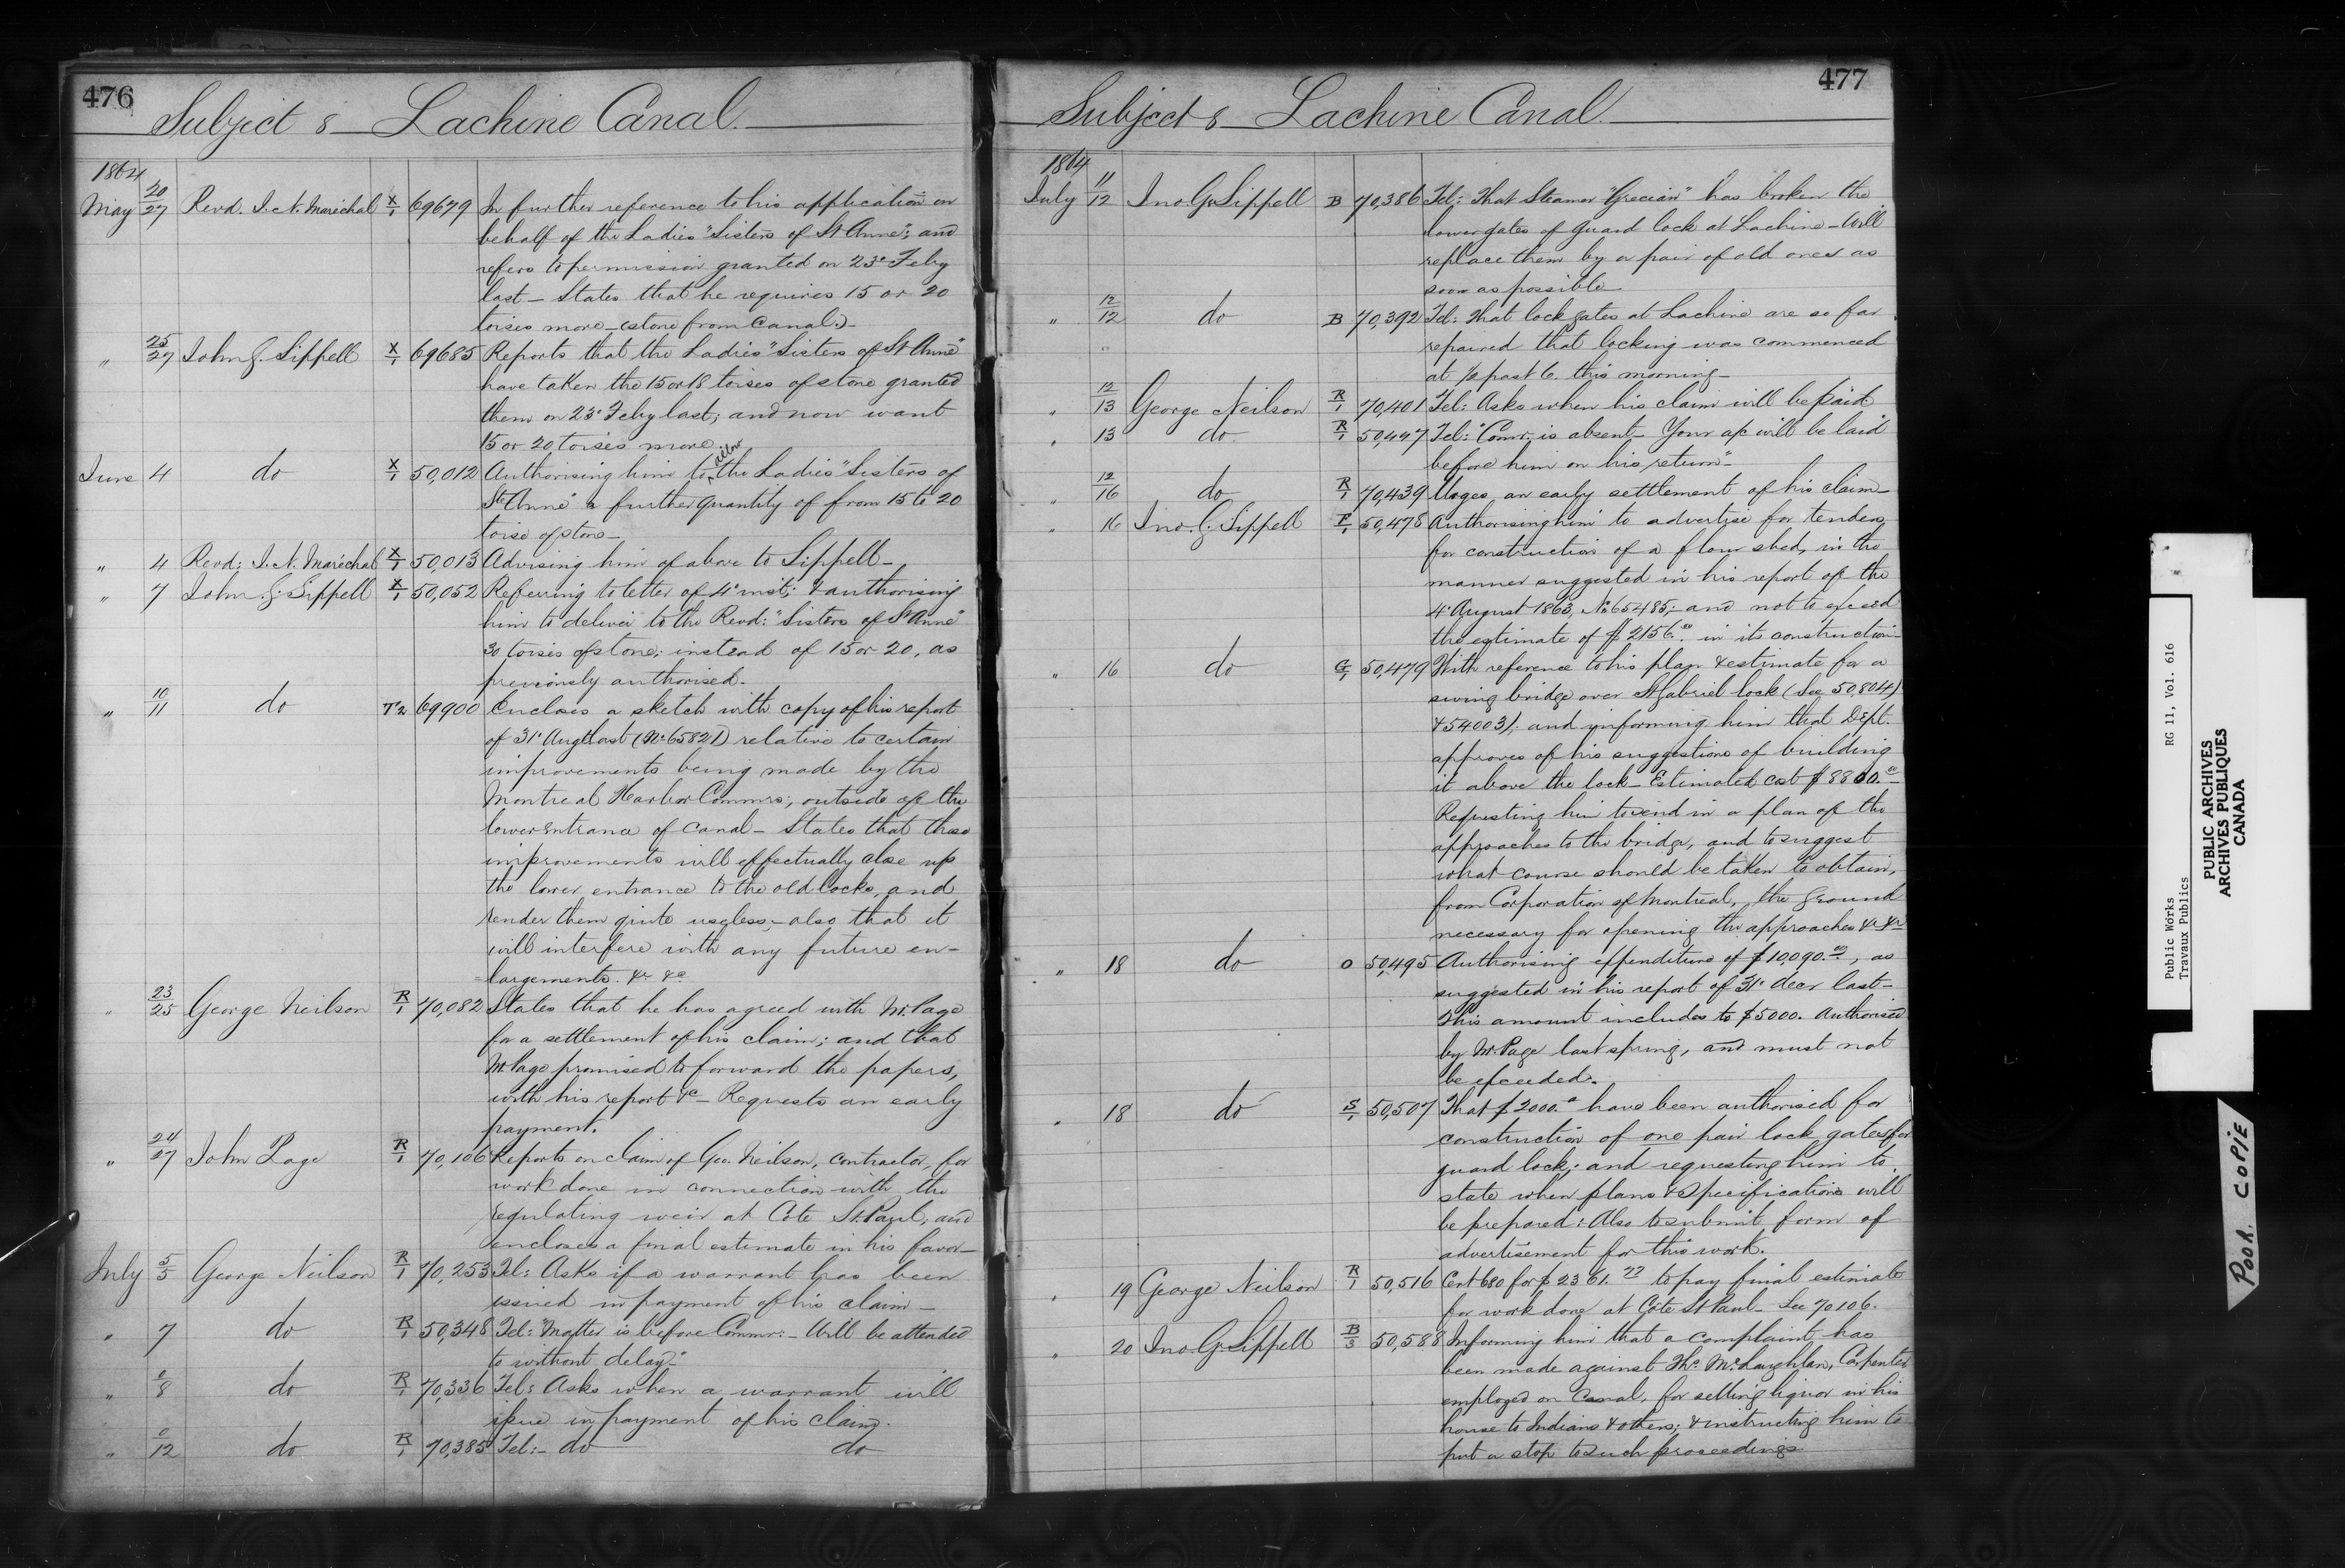 476
Subject :- Lachine Canal.
1864
May 20/27 Revd. J. N. Maréchal X/1 69679 In further reference to his application on
behalf of the Ladies "Sisters of St Anne"; and
refers to permission granted on 23d Feby
last - States that he requires 15 or 20
toises more - (stone from Canal.) -
" 25/27 John G. Sippell X/1 69685 Reports that the Ladies "Sisters of St Anne"
have taken the 15 or 18 toises of stone granted
them on 23d Feby last; and now want
15 or 20 toises more.
June 4 do X/1 50,012 Authorising him to allow the Ladies "Sisters of
St Anne" a further quantity of from 15 to 20
toise of stone -
" 4 Revd: J. N. Maréchal X/1 50,013 Advising him of above to Sippell -
" 7 John G. Sippell X/1 50,052 Referring to letter of 4th inst; & authorising
him to deliver to the Revd: "Sisters of St Anne"
30 toises of stone; instead of 15 or 20, as
previously authorised.
" 10/11 do T2 69900 Encloses a sketch with copy of his report
of 31st Augt last (No 65821) relative to certain
improvements being made by the
Montreal Harbor Commrs; outside of the
lower entrance of Canal - States that these
improvements will effectually close up
the lower entrance to the old locks, and
render them quite useless; - also that it
will interfere with any future en-
largements. &c &c
" 23/25 George Neilson R/1 70,082 States that he has agreed with Mr. Page
for a settlement of his claim; and that
Mr Page promised to forward the papers,
with his report &c - Requests an early
payment.
" 24/27 John Page R/1 70,106 Reports on claim of Geo. Neilson, contractor, for
work done in connection with the
regulating weir at Côte St. Paul, and
encloses a final estimate in his favor -
July 5/5 George Neilson R/1 70,253 Tel: Asks if a warrant has been
issued in payment of his claim -
" 7 do R/1 50,348 Tel: "Matter is before Commr: - Will be attended
to without delay" -
" 8 do R/1 70,336 Tel: Asks when a warrant will
issue in payment of his claim.
" 12 do R/1 70,385 Tel: - do do
477
Subject :- Lachine Canal.
1864
July 11/12 Jno. G. Sippell B 70,386 Tel: That Steamer "Grecian" has broken the
lower gates of guard lock at Lachine - Will
replace them by a pair of old ones as
soon as possible -
" 12/12 do B 70,392 Tel: That lock gates at Lachine are so far
repaired that locking was commenced
at 1/2 past 6. this morning -
" 12/13 George Neilson R/1 70,401 Tel: Asks when his claim will be paid
" 13 do. R/1 50,447 Tel: "Commr. is absent - Your a/c will be laid
before him on his return" -
" 12/16 do R/1 70,439 Urges an early settlement of his claim -
" 16 Jno. G. Sippell F/1 50,478 Authorising him to advertise for tenders
for construction of a flour shed, in the
manner suggested in his report of the
4th August 1863, No 65485; - and not to exceed
the estimate of $2156.00 in its construction -
" 16 do G/1 50,479 With reference to his plan & estimate for a
swing bridge over St Gabriel lock (See 50,804)
& 54003); and informing him that Dept.
approves of his suggestions of building
it above the lock - Estimated cost $8800.00 -
Requesting him to send in a plan of the
approaches to the bridge, and to suggest
what course should be taken to obtain,
from Corporation of Montreal, the ground
necessary for opening the approaches &c &c
" 18 do O 50,495 Authorising expenditure of $10,090.00, as
suggested in his report of 31st decr last -
This amount includes to $5000. Authorised
by Mr Page last spring, and must not
be exceeded.
" 18 do S/1 50,507 That $2000.00 have been authorised for
construction of one pair lock gates for
guard lock; and requesting him to
state when plans & specifications will
be prepared: Also to submit form of
advertisement for this work.
" 19 George Neilson R/1 50,516 Cert 680 for $2361.77 to pay final estimate
for work done at Côte St Paul - See 70106.
" 20 Jno. G. Sippell B/3 50,588 Informing him that a complaint has
been made against Ths. McLaughlan, Carpenter
employed on Canal, for selling liquor in his
house to Indians & others; & instructing him to
put a stop to such proceedings
Public Works RG 11, Vol. 616
Travaux Publics
PUBLIC ARCHIVES
ARCHIVES PUBLIQUES
CANADA
POOR COPIE